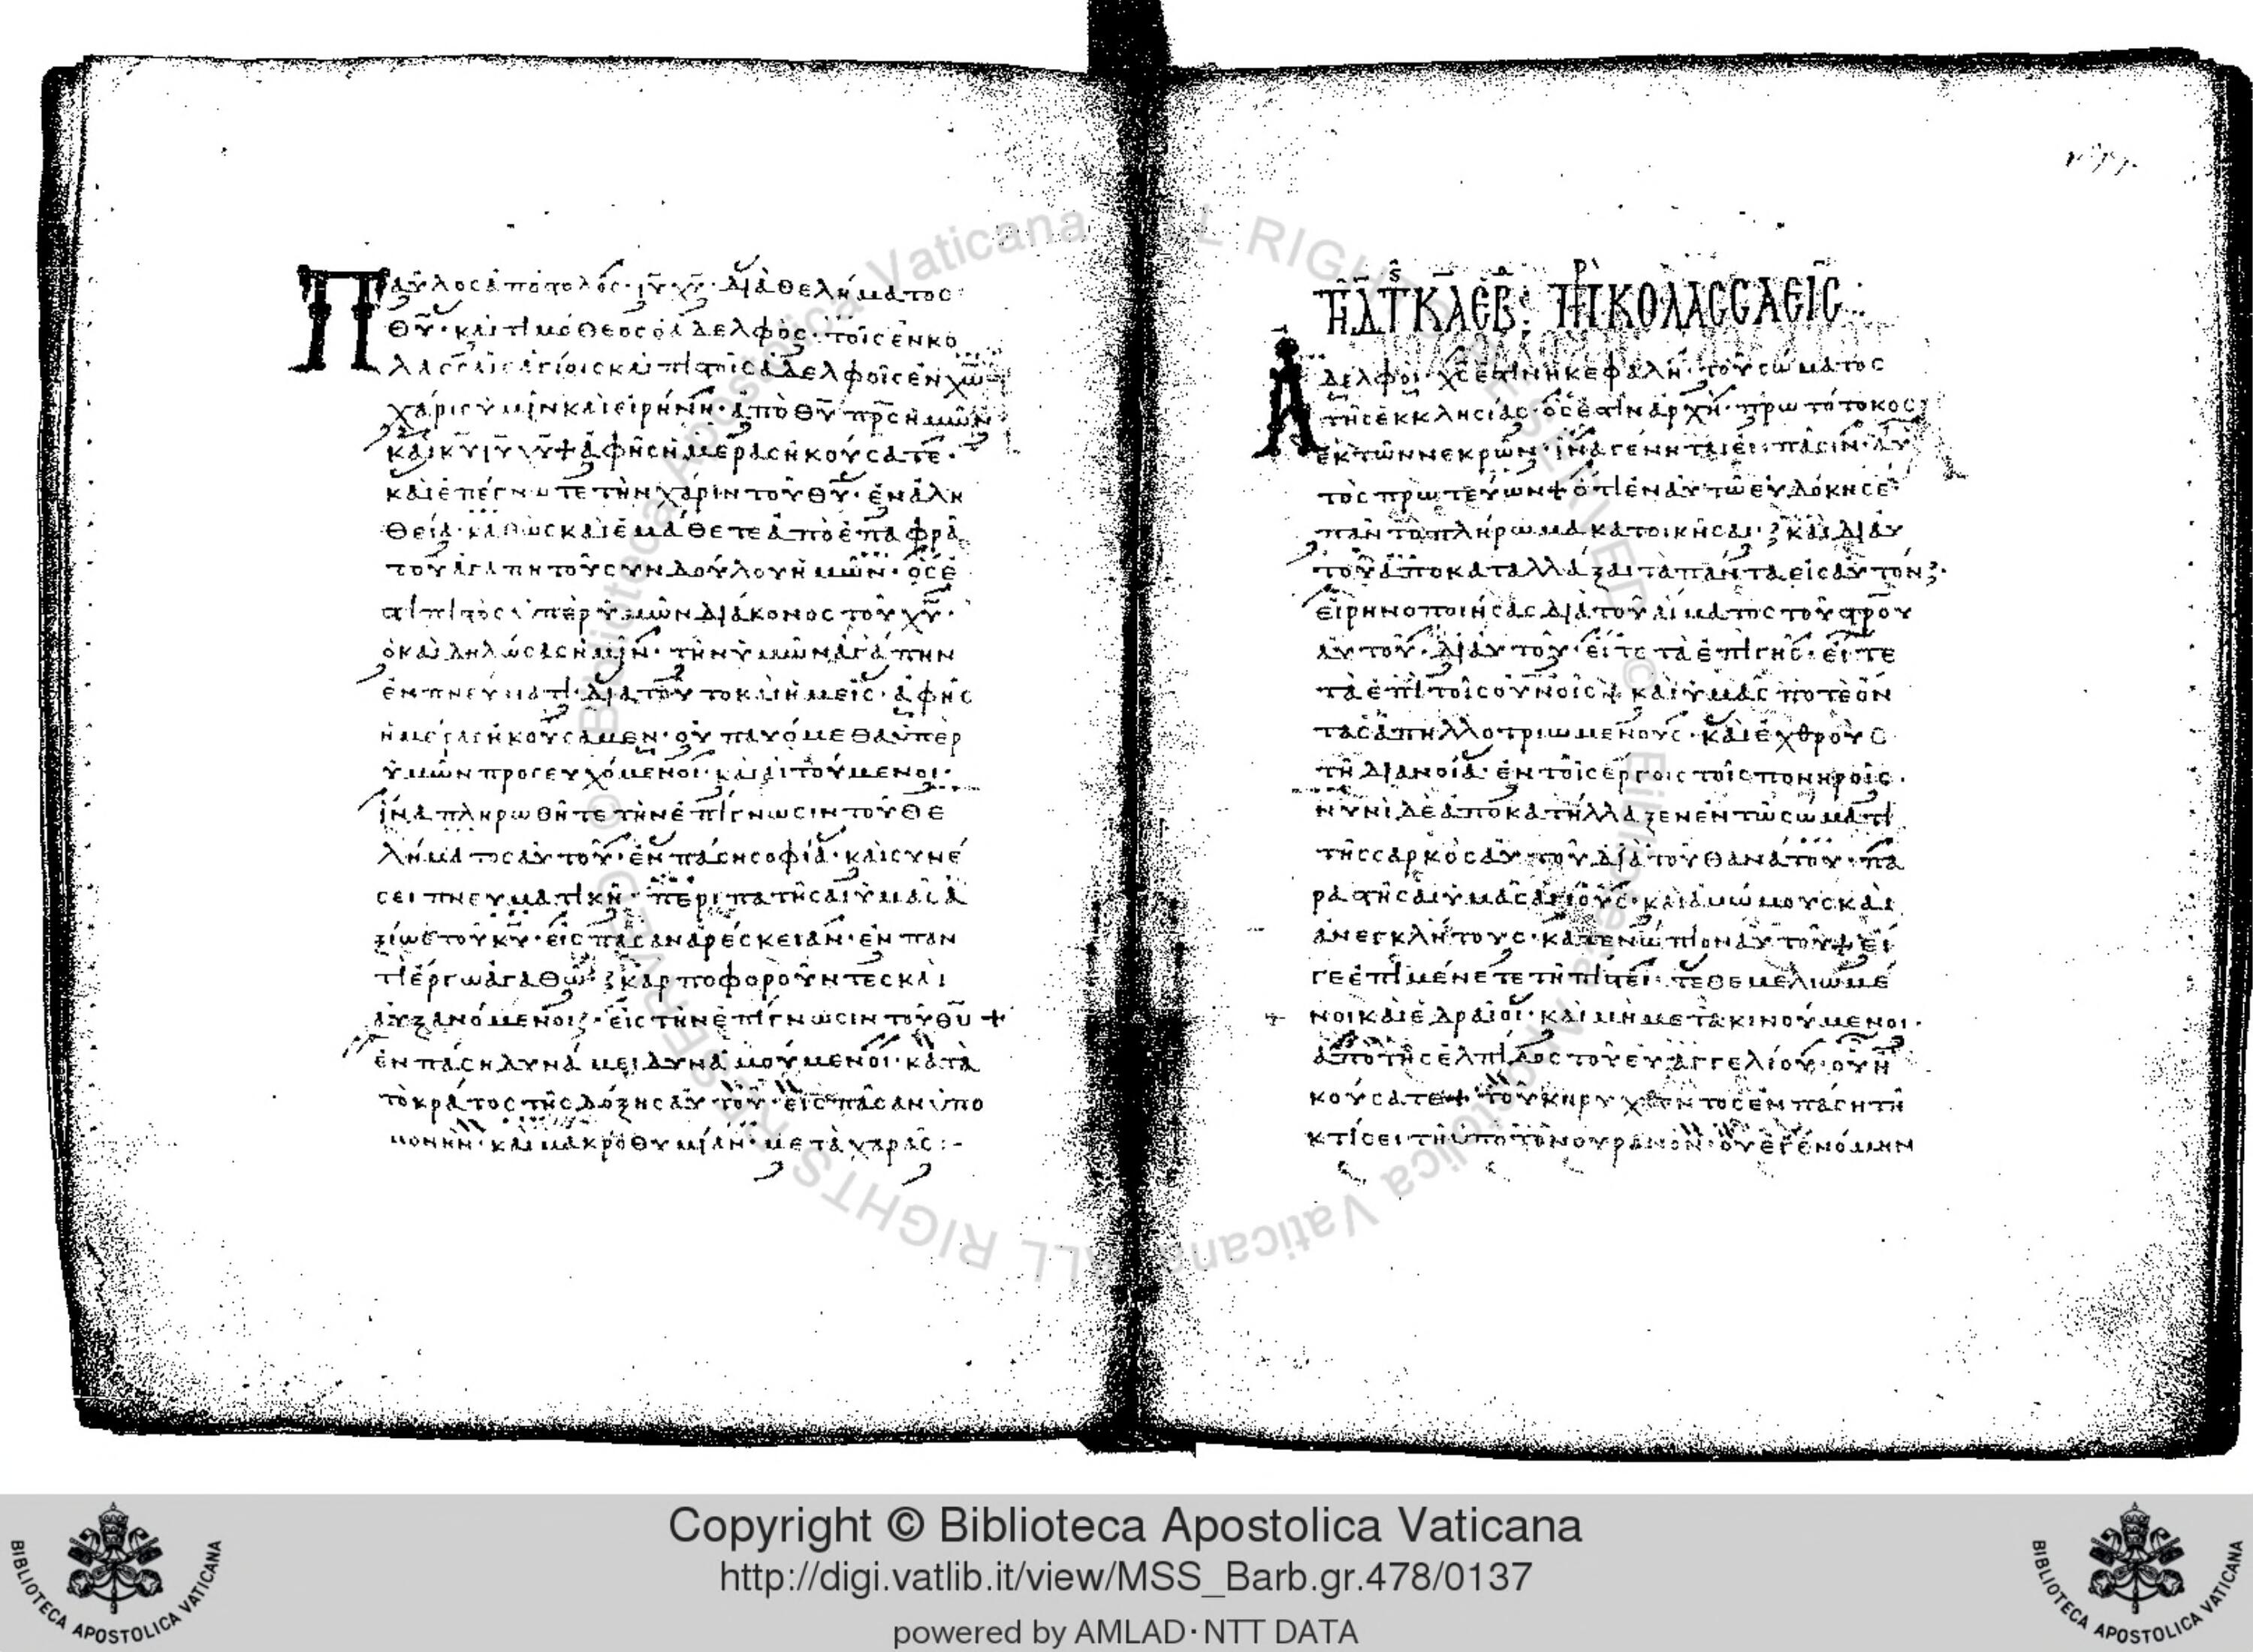 Παῦλος ἀπόστολος ιυ χυ · διὰ θελήματος
θυ · καὶ τιμόθεος ὁ ἀδελφὸς · τοῖς ἐν κο
λασσαῖς ἁγίοις καὶ πιστοῖς ἀδελφοῖς ἐν χω
χάρις ὑμῖν καὶ εἰρήνη · ἀπὸ θυ πρς ἡμῶν
καὶ κυ ιυ χυ + ἀφ ἧς ἡμέρας ἠκούσατε ·
καὶ ἐπέγνωτε τὴν χάριν τοῦ θυ · ἐν ἀλη
θεία · καθὼς καὶ ἐμάθετε ἀπὸ ἐπαφρᾶ
τοῦ ἀγαπητοῦ συνδούλου ἡμῶν · ὅς ἐ
στι πιστὸς ὑπὲρ ὑμῶν διάκονος τοῦ χυ ·
ὁ καὶ δηλώσας ἡμῖν · τὴν ὑμῶν ἀγάπην
ἐν πνεύματι · διὰ τοῦτο καὶ ἡμεῖς · ἀφ ἧς
ἡμέρας ἠκούσαμεν · οὐ παυόμεθα ὑπὲρ
ὑμῶν προσευχόμενοι · καὶ αἰτούμενοι ·
ἵνα πληρωθῆτε τὴν ἐπίγνωσιν τοῦ θε
λήματος αὐτοῦ · ἐν πάση σοφία · καὶ συνέ
σει πνευματικῆ · περιπατῆσαι ὑμᾶς ἀ
ξίως τοῦ κυ · εἰς πᾶσαν ἀρέσκειαν · ἐν παν
τὶ ἔργω ἀγαθῶ · καρποφοροῦντες καὶ
αὐξανόμενοι · εἰς τὴν ἐπίγνωσιν τοῦ θυ +
ἐν πάση δυνάμει δυναμούμενοι · κατὰ
τὸ κράτος τῆς δόξης αὐτοῦ · εἰς πᾶσαν ὑπο
μονὴν · καὶ μακροθυμίαν · μετὰ χαρᾶς :-
ΚΟΛΑΣΣΑΕΙΣ
Ἀδελφοὶ · χς ἐστὶν ἡ κεφαλὴ · τοῦ σώματος
τῆς ἐκκλησίας · ὅς ἐστὶν ἀρχὴ · πρωτότοκος
ἐκ τῶν νεκρῶν · ἵνα γένηται ἐν πᾶσιν · αὐ
τὸς πρωτεύων + ὅτι ἐν αὐτῶ εὐδόκησε
πᾶν τὸ πλήρωμα κατοικῆσαι · καὶ δι αὐ
τοῦ ἀποκαταλλάξαι τὰ πάντα εἰς αὐτόν ·
εἰρηνοποιήσας διὰ τοῦ αἵματος τοῦ στρου
αὐτοῦ · δι αὐτοῦ · εἴτε τὰ ἐπὶ γῆς · εἴτε
τὰ ἐπὶ τοῖς οὐνοις + καὶ ὑμᾶς ποτὲ ὄν
τας ἀπηλλοτριωμένους · καὶ ἐχθροὺς
τῆ διανοία · ἐν τοῖς ἔργοις τοῖς πονηροῖς ·
νυνὶ δὲ ἀποκατήλλαξεν ἐν τῶ σώματι
τῆς σαρκὸς αὐτοῦ διὰ τοῦ θανάτου · πα
ραστῆσαι ὑμᾶς ἁγίους · καὶ ἀμώμους καὶ
ἀνεγκλήτους · κατενώπιον αὐτοῦ + εἴ
γε ἐπιμένετε τῆ πίστει · τεθεμελιωμέ
νοι καὶ ἑδραῖοι · καὶ μὴ μετακινούμενοι ·
ἀπὸ τῆς ἐλπίδος τοῦ εὐαγγελίου · οὗ ἠ
κούσατε + τοῦ κηρυχθέντος ἐν πάση τῆ
κτίσει τῆ ὑπὸ τὸν οὐρανὸν · οὗ ἐγενόμην
Copyright © Biblioteca Apostolica Vaticana
http://digi.vatlib.it/view/MSS_Barb.gr.478/0137
powered by AMLAD·NTT DATA
BIBLIOTECA APOSTOLICA VATICANA
BIBLIOTECA APOSTOLICA VATICANA